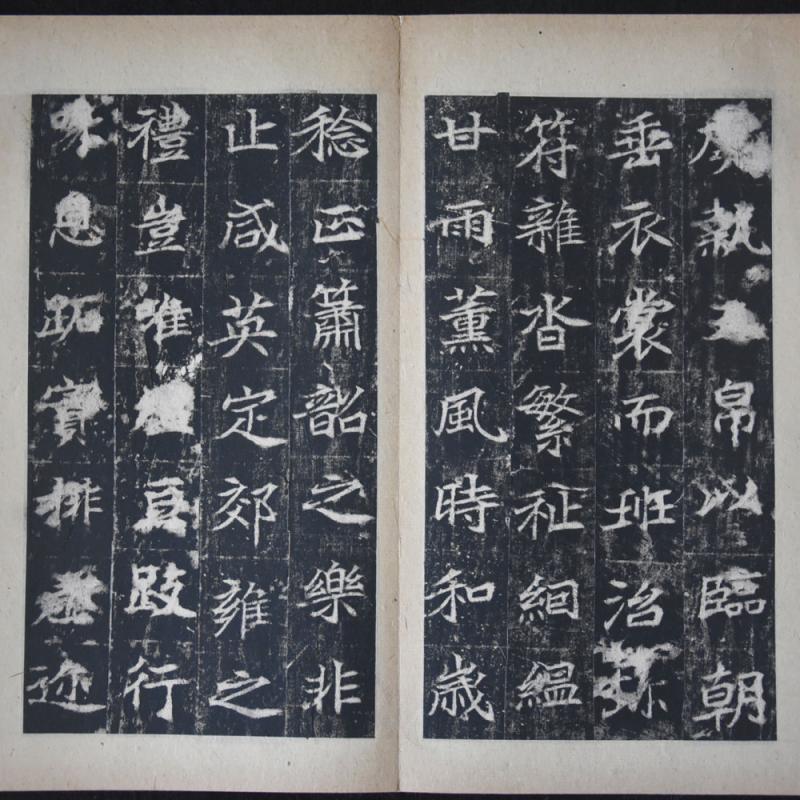 執玉帛以臨朝
垂衣裳而班治
符雜沓繁祉絪縕
甘雨薰風時和歲
稔正簫韶之樂非
止咸英定郊雍之
禮豈唯豆跂行
息跖實排迹